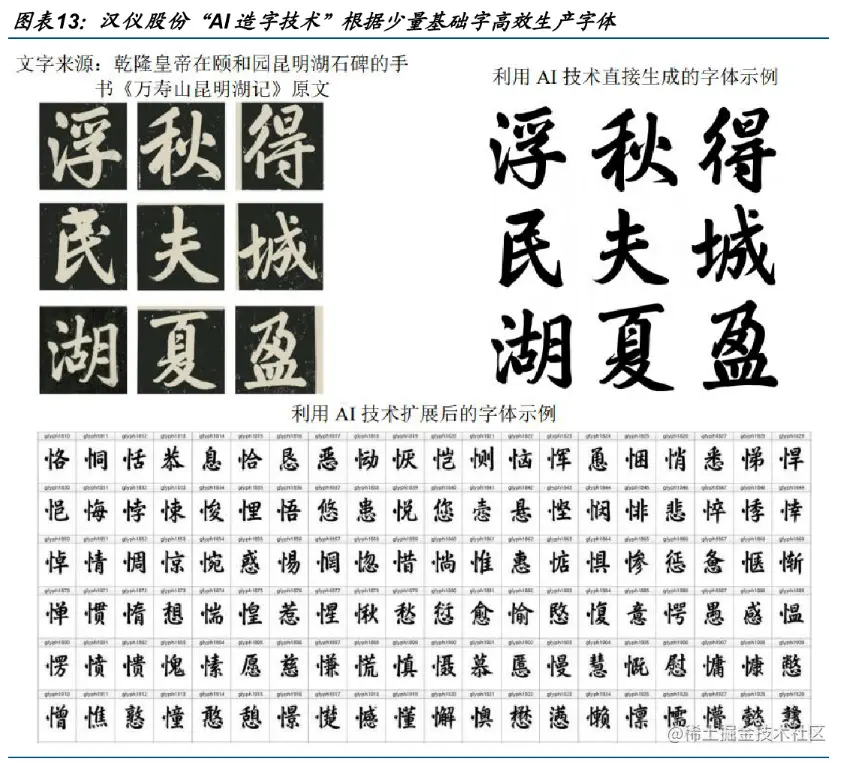 图表13：汉仪股份“AI造字技术”根据少量基础字高效生产字体
文字来源：乾隆皇帝在颐和园昆明湖石碑的手
书《万寿山昆明湖记》原文
浮 秋 得
民 夫 城
湖 夏 盈
利用 AI 技术直接生成的字体示例
浮 秋 得
民 夫 城
湖 夏 盈
利用 AI 技术扩展后的字体示例
恪 恫 恬 恭 息 恰 恳 恶 恸 恢 恺 恻 恼 恽 恿 悃 悄 悉 悌 悍
悒 悔 悖 悚 悛 悝 悟 悠 患 悦 您 悫 悬 悭 悯 悱 悲 悴 悸 悻
悼 情 惆 惊 惋 惑 惕 惘 惚 惜 惝 惟 惠 惦 惧 惨 惩 惫 惬 惭
惮 惯 惰 想 惴 惶 惹 惺 愀 愁 愆 愈 愉 愍 愎 意 愕 愚 感 愠
愣 愤 愦 愧 愫 愿 慈 慊 慌 慎 慑 慕 慝 慢 慧 慨 慰 慵 慷 憋
憎 憔 憝 憧 憨 憩 憬 憷 憾 懂 懈 懊 懋 懑 懒 懔 懦 懵 懿 戆
@稀土掘金技术社区